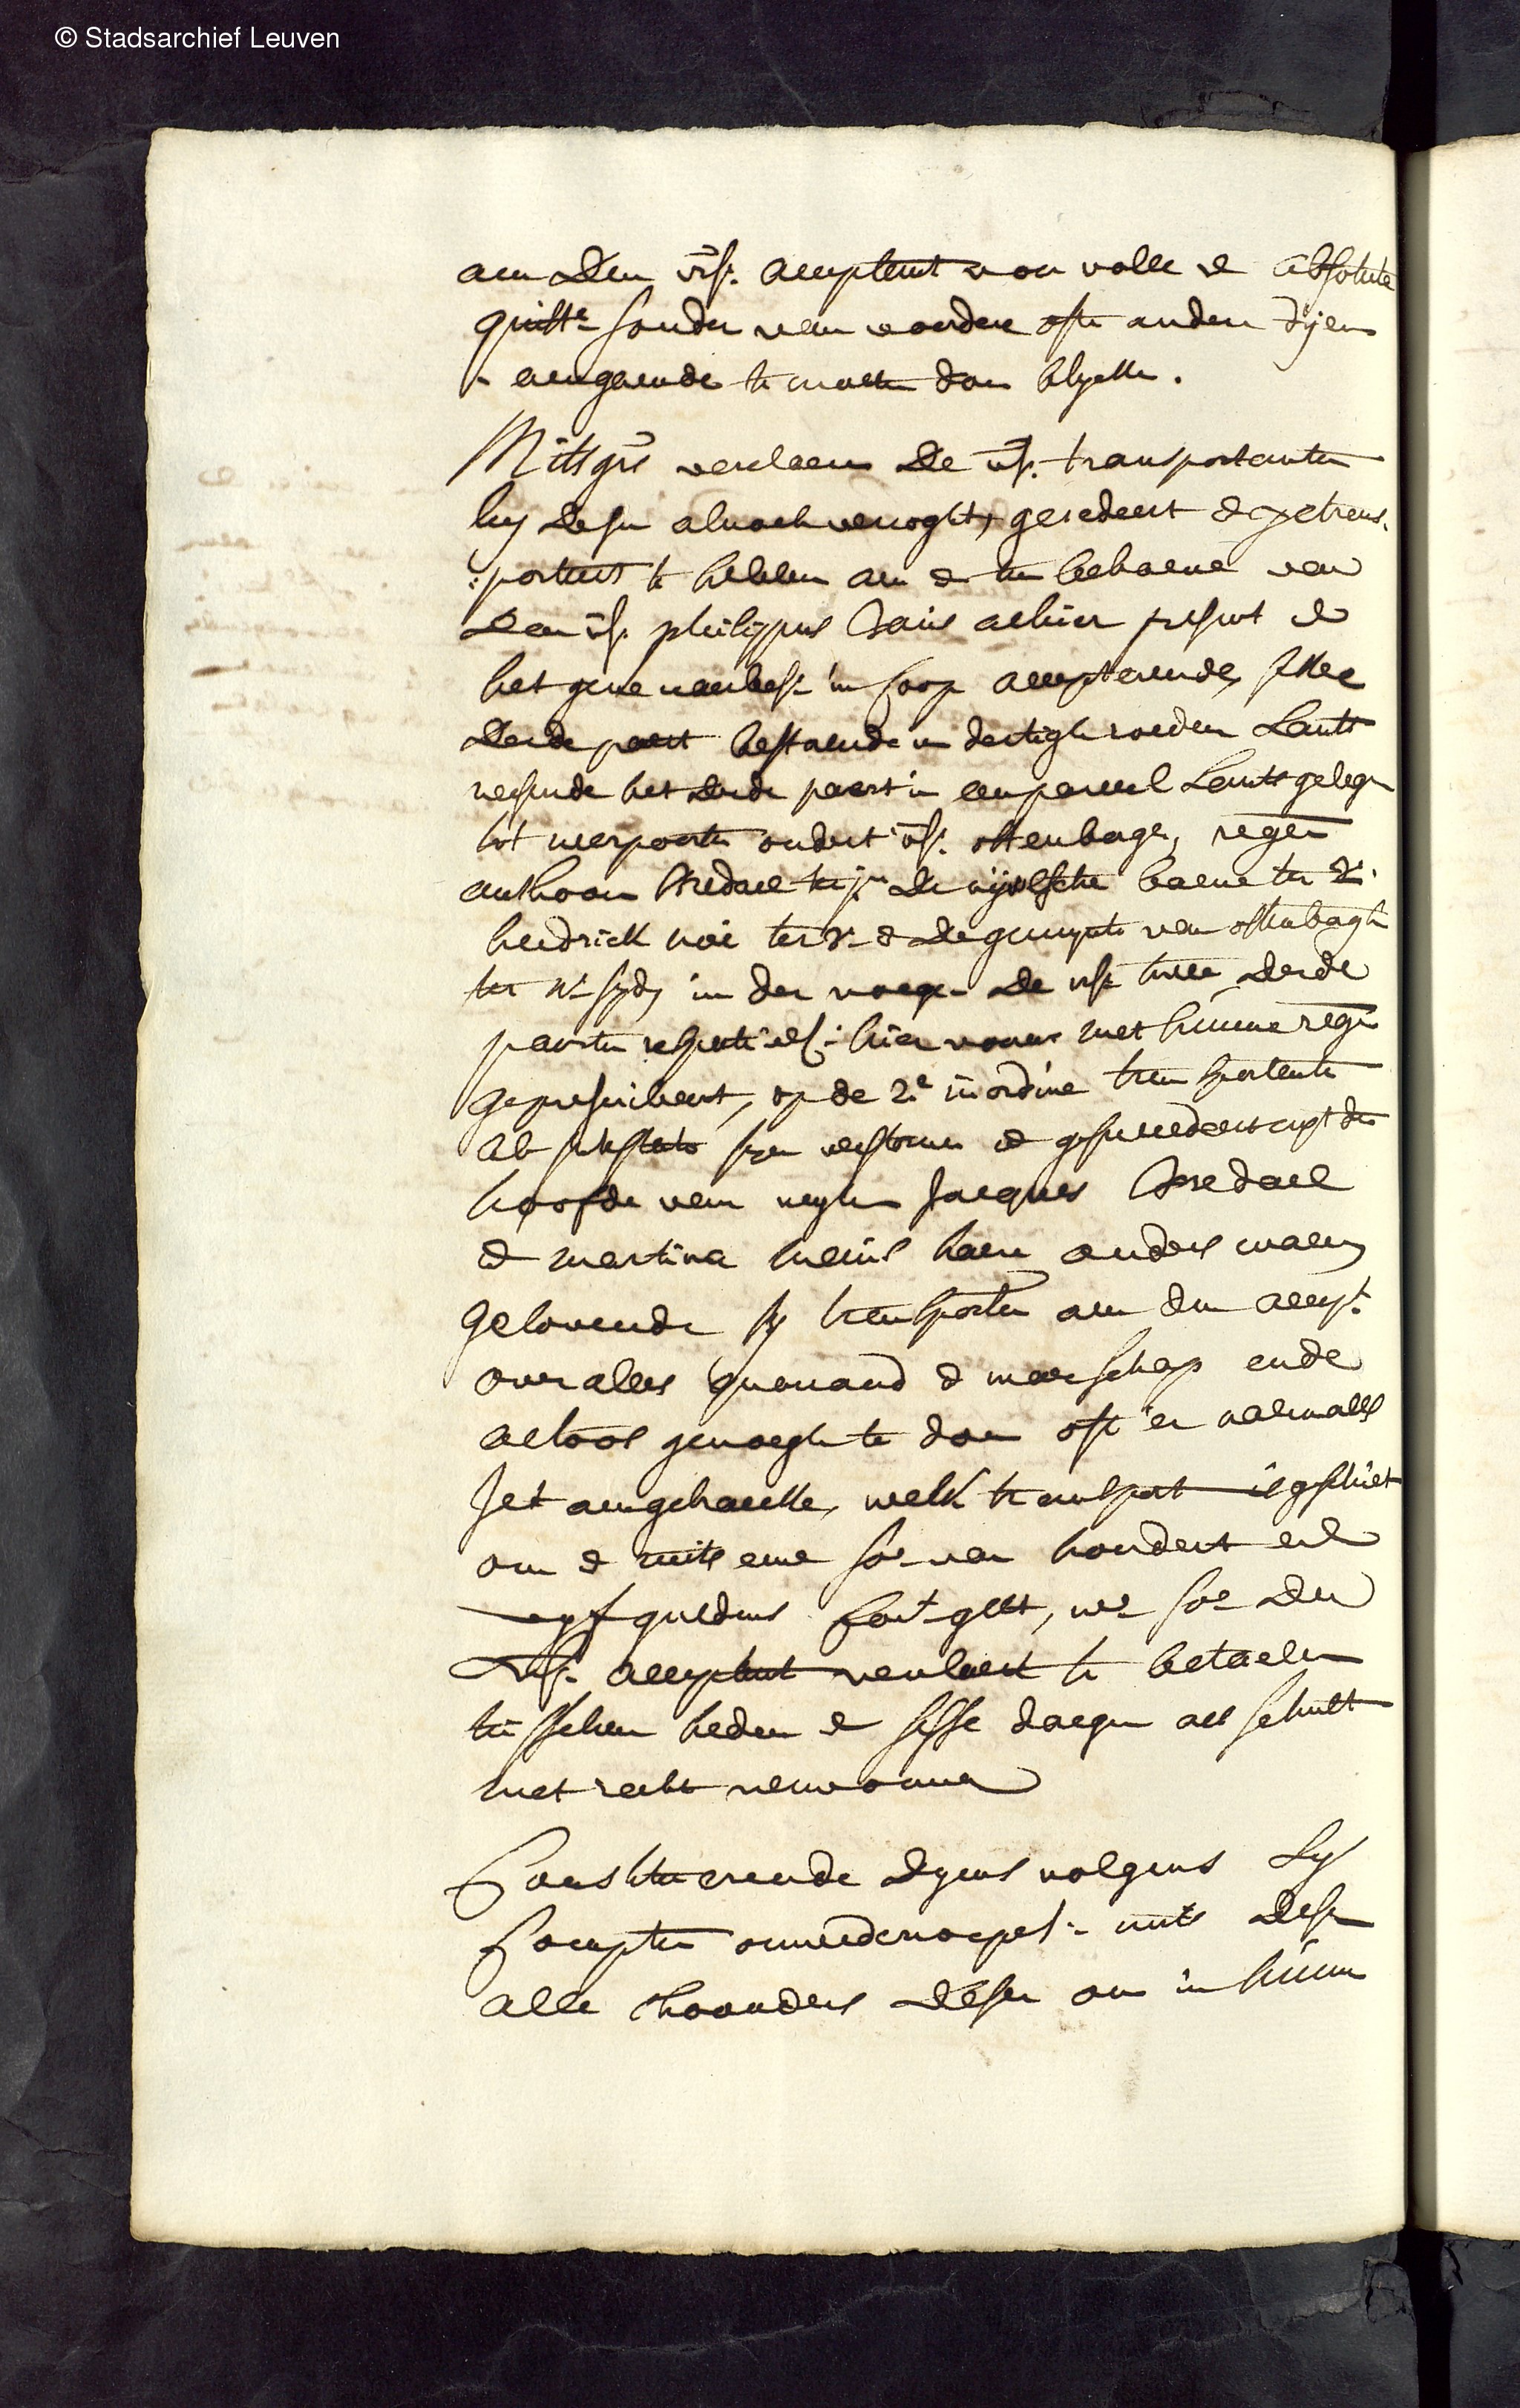 © Stadsarchief Leuven
aen den vs. acceptant voor volle e absolute
quitt.e sonder van voordere ofte andere dijen
aengaende te moeten doen blycken.
Mitsgrs verclaeren de vs. transportanten
by desen alnoch vercoght, gecedeert e getrans-
:porteert te hebben aen e ten behoeve van
den vs. philippus alhier present e
het gene naerbes. in coop accepterende,
derde paert bestaende in dertigh roeden Lants
wesende het derde paert in een parceel Lants gelegen
tot neerpoorten ondert vs. ottenborgh, regen.
anthoen Bredael ter j.e de baene ter 2.
hendrick ter 3. e de gemeynte van ottenborgh
ter 4. syden in der voegen de vs. twee derde
paerten hier voorens met hunne regen.
geprescribeert, op de 2.e in ordine transportante
ab intestato syn verstorven e gesuccedeert uyt den
hoofde van wylen Jacques Bredael
e martina haere ouders waeren
gelovende sy transporten aen den accept.
over alles guarand e waerschap ende
altoos genoegh te doen oft er naermaels
Iet aengebraeckte, welck transport is geschiet
om e mits eene so.e van hondert en
vyf guldens cour.t gelt, we so.e den
vs. acceptant verclaert te betaelen
tusschen heden e sesse daegen als schult
met recht verwonnen
Constituerende dyens volgens sy
Comptn onwederroepel. mits dese
alle thoonders deser om in hunnen